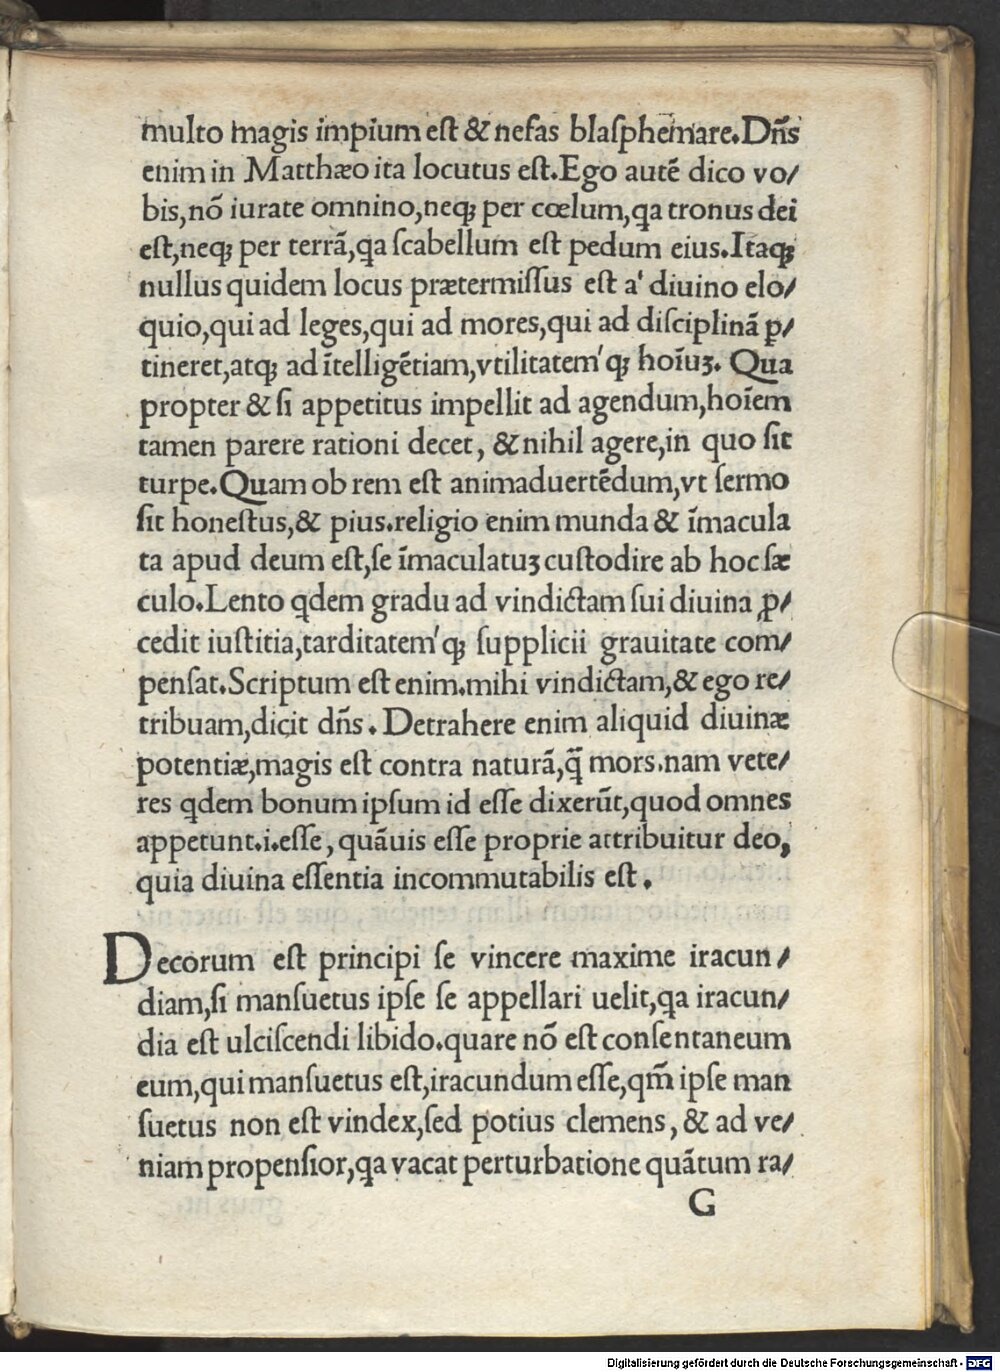 multo magis impium eſt & nefas blaſphemare. Dn̄s
enim in Matthæo ita locutus eſt. Ego autē dico vo/
bis, nō iurate omnino, neqꝫ per cœlum, qa tronus dei
eſt, neqꝫ per terrā, qa ſcabellum eſt pedum eius. Itaqꝫ
nullus quidem locus prætermiſſus eſt a' diuino elo/
quio, qui ad leges, qui ad mores, qui ad diſciplinā ꝑ/
tineret, atqꝫ ad ītelligētiam, vtilitatem'qꝫ hoīuꝫ. Qua
propter & ſi appetitus impellit ad agendum, hoīem
tamen parere rationi decet, & nihil agere, in quo ſit
turpe. Quam ob rem eſt animaduertēdum, vt ſermo
ſit honeſtus, & pius. religio enim munda & īmacula
ta apud deum eſt, ſe īmaculatuꝫ cuſtodire ab hoc ſæ
culo. Lento qdem gradu ad vindictam ſui diuina ꝓ/
cedit iuſtitia, tarditatem'qꝫ ſupplicii grauitate com/
penſat. Scriptum eſt enim. mihi vindictam, & ego re/
tribuam, dicit dn̄s. Detrahere enim aliquid diuinæ
potentiæ, magis eſt contra naturā, q̄̃ mors. nam vete/
res qdem bonum ipſum id eſſe dixerūt, quod omnes
appetunt. i. eſſe, quāuis eſſe proprie attribuitur deo,
quia diuina eſſentia incommutabilis eſt.
Decorum eſt principi ſe vincere maxime iracun/
diam, ſi manſuetus ipſe ſe appellari uelit, qa iracun/
dia eſt ulciſcendi libido. quare nō eſt conſentaneum
eum, qui manſuetus eſt, iracundum eſſe, qm̄ ipſe man
ſuetus non eſt vindex, ſed potius clemens, & ad ve/
niam propenſior, qa vacat perturbatione quātum ra/
G
Digitalisierung gefördert durch die Deutsche Forschungsgemeinschaft - DFG